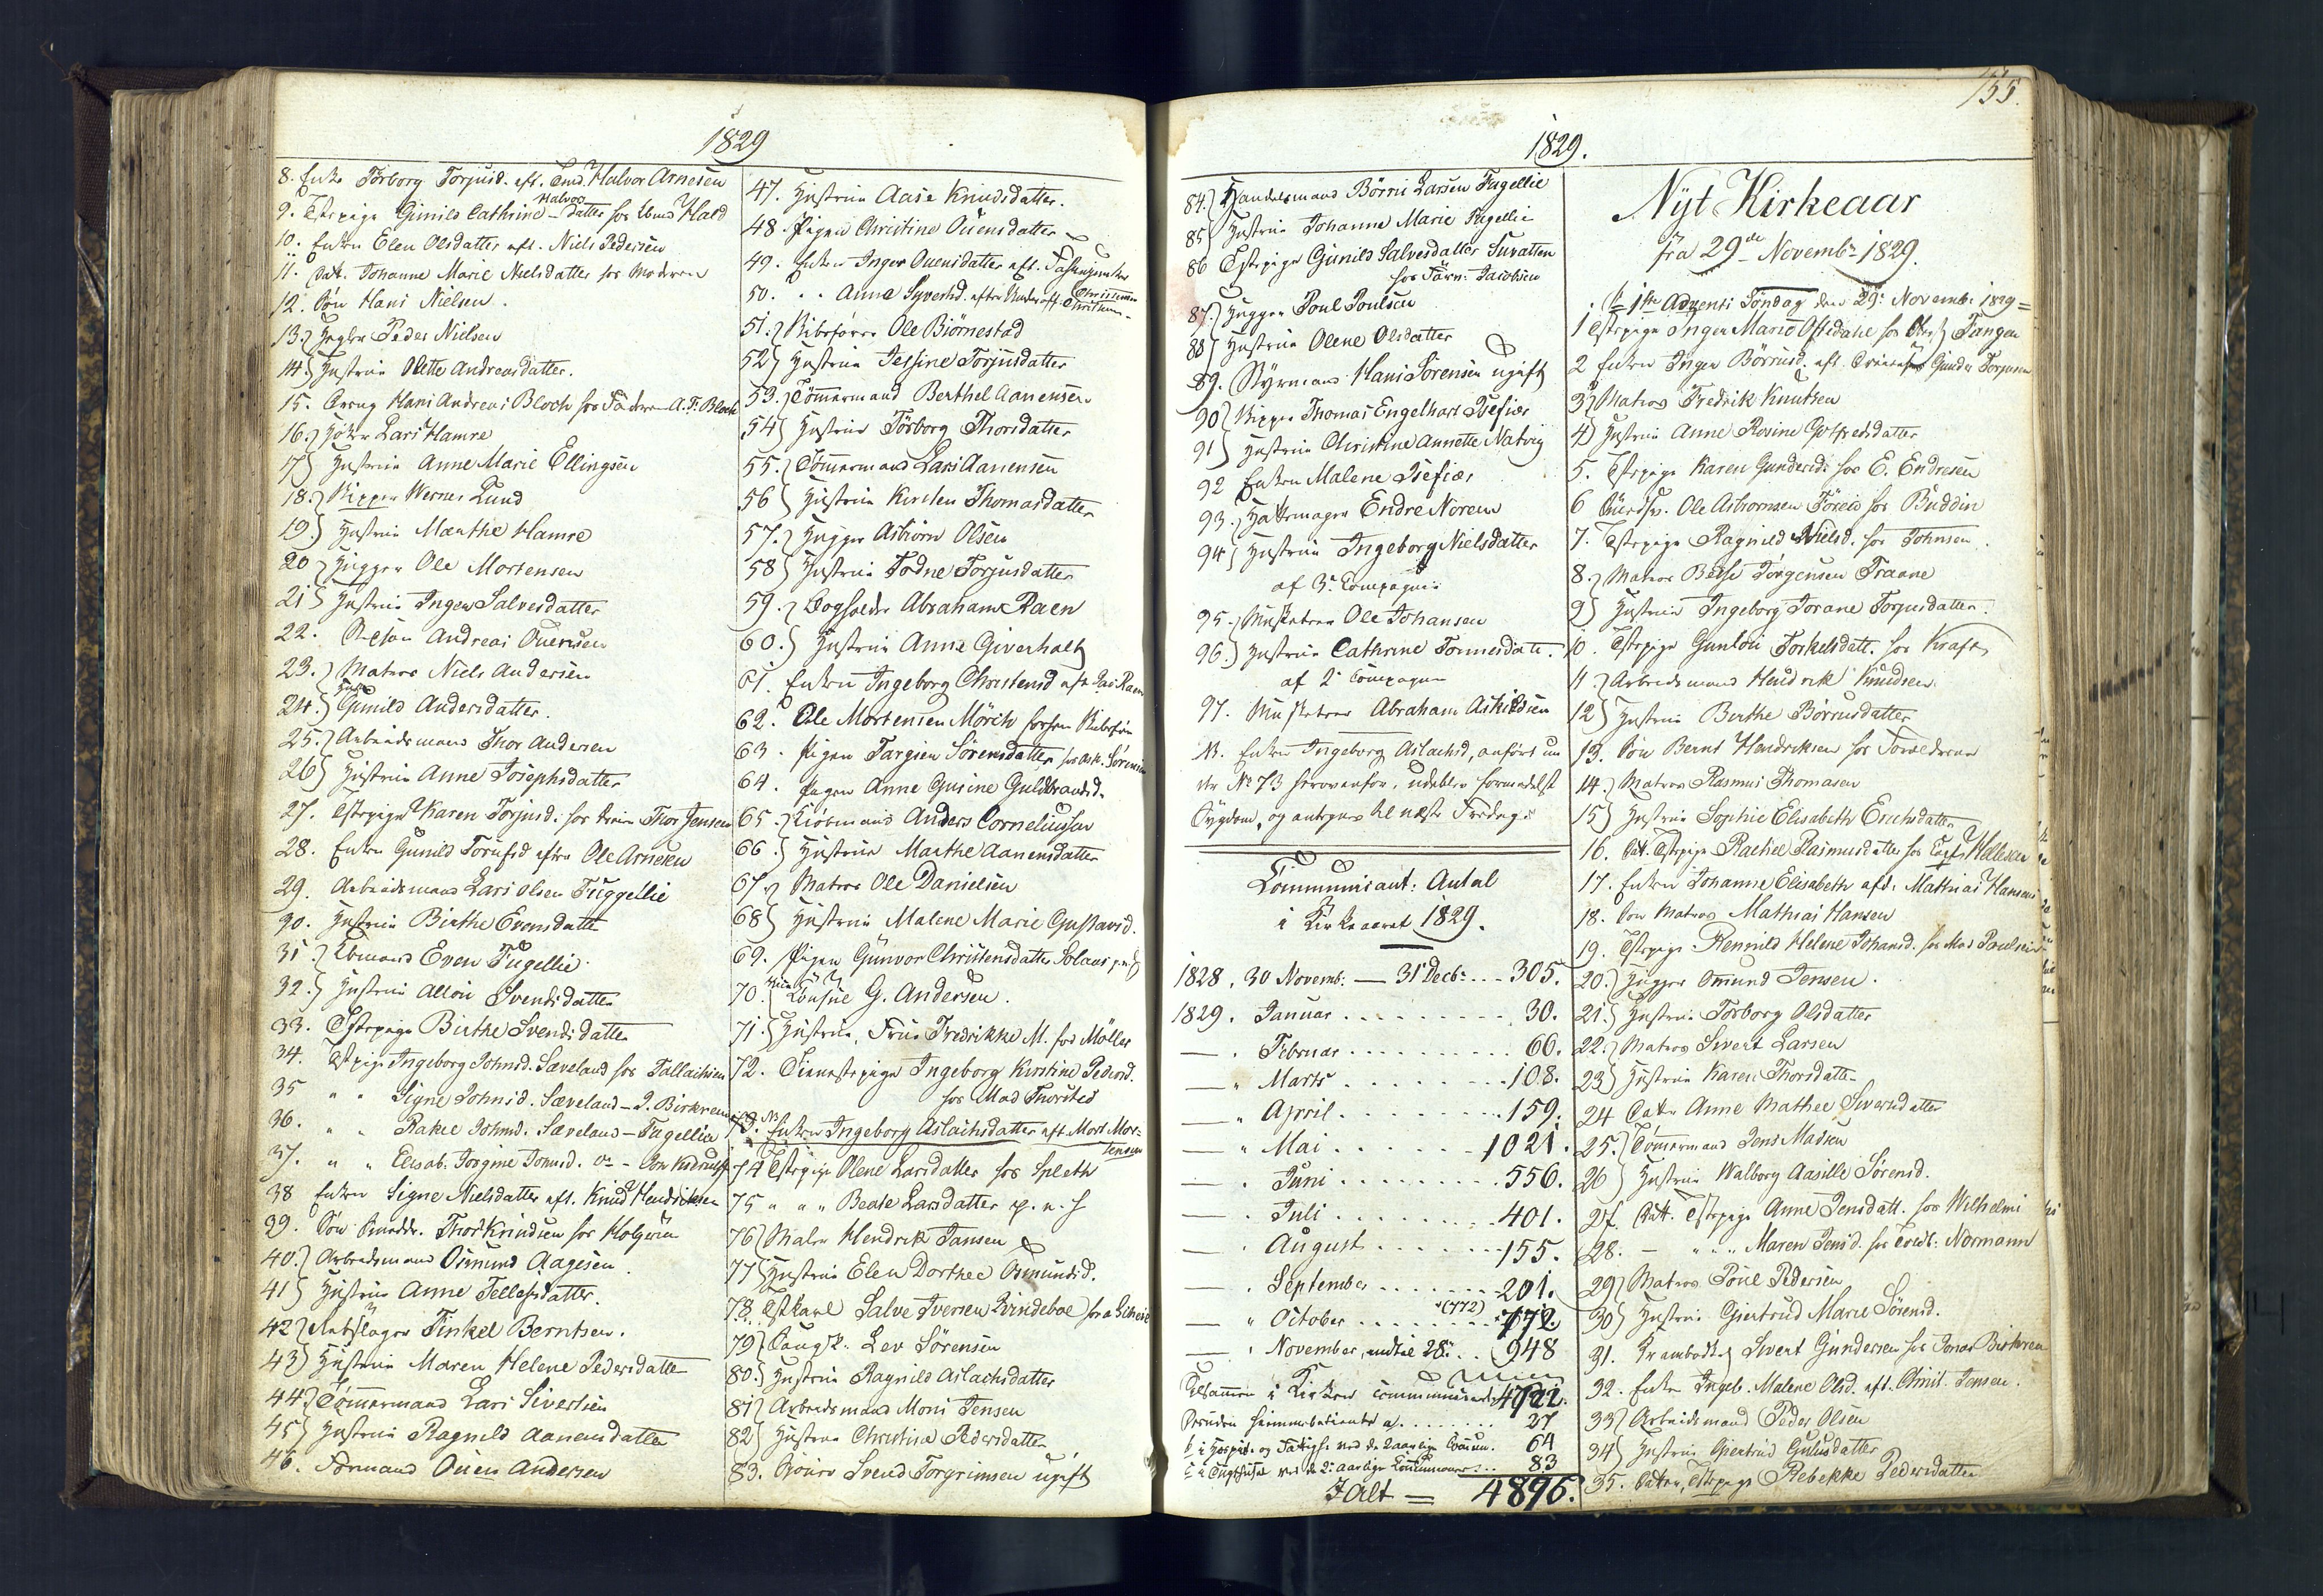 1829
8. Enke Torborg Torjusd. eft. Halvor Arnesen
9. Tstpige Gunild Cathrine Halvordatter hos Hald
10. Enken Elen Olsdatter eft. Niels Pedersen
11. Datt. Johanne Marie Nielsdatter hos Moderen
12. Søn Hans Nielsen.
13. Peder Nielsen
14 Hustrue Olette Andreasdatter.
15. Hans Andreas Bloch hos Faderen A. F. Bloch
16. Lars Hamre
17 Hustrue Anne Marie Ellingsen
18. Skipper Werner Lund
19. Hustrue Marthe Hamre
20 Hugger Ole Mortensen
21 Hustrue Inger Salvesdatter
22. Andreas Ouensen
23. Matros Niels Andersen
24. Hust. Gunild Andersdatter.
25. Arbeidsmand Thor Andersen
26 Hustrue Anne Josephsdatter
27. Tstpige Karen Torjusd. hos Thor Jensen
28. Enken Gunild efter Ole Arnesen
29. Arbeidsmand Lars Olsen Fuggellie
30. Hustrue Birthe Evensdatter
31. Even Fugellie
32. Hustrue Allou Svendsdatter
33. Tstpige Birthe Svendsdatter
34. Tstpige Ingeborg Johnsd. Sæveland hos Tallachsen
35 " " Signe Johnsd. Sæveland - J. Birkrem
36. " " Rakel Johnsd. Sæveland - Fugellie
37. " " Elisab. Jorgine
38 Enken Signe Nielsdatter eft. Knud Hendriksen
39. Søn Thor Knudsen hos Holgersen
40. Arbeidsmand Osmund Aagesen
41 Hustrue Anne Tellefsdatter.
42 Rebslager Tinkel Berntsen.
43 Hustrue Maren Helene Pedersdatter
44 Tømmermand Lars Sivertsen
45 Hustrue Ragnild Aanensdatter
46. Formand Ouen Andersen
47. Hustrue Aase Knudsdatter.
48. Pigen Christine Ouensdatter
49. Enken Inger Ouensdatter eft.
50. " " Anne Syvertsd. Christensen
51. Ole Biørnestad
52 Hustrue Jessine Torjusdatter
53. Tømmermand Berthel Aanensen
54 Hustrue Torborg Thorsdatter
55. Tømmermand Lars Aanensen
56 Hustrue Kirsten Thomasdatter
57. Hugger Asbiørn Olsen
58 Hustrue Todne Torjusdatter
59. Bogholder Abraham Raen
60. Hustrue Anne Giverholt
61. Enken Ingeborg Christensd eft. Raen
62. Ole Mortensen Mörch
63. Pigen Targien Sørensdatter hos Sørensen
64. Pigen Anne Gusine Guldbrandsd.
65. Kiøbmand Anders Corneliussen
66. Hustrue Marthe Aanensdatter
67. Matros Ole Danielsen
68 Hustrue Malene Marie Gustavsd.
69. Pigen Gunvor Christensdatter
70. Consul G. Andersen.
71. Hustrue, Frue Fredrikke M. fød Møller
72. Tienestepige Ingeborg Kirstine Pedersd.
hos Mad Thorsted
73. NB Enken Ingeborg Aslachsdatter eft. Mort. Mortensen
74 Tstpige Olene Larsdatter hos Spleth
75 " " " Beate Larsdatter
76 Maler Hendrik Jansen
77 Hustrue Elen Dorthee Osmundsd.
78. Tstkarl Salve Iversen Qvindeboe
79 Lev Sørensen
80. Hustrue Ragnild Aslachsdatter
81 Arbeidsmand Mons Jensen
82 Hustrue Christine Pedersdatter
83. Svend Torgrimsen ugift
155.
1829.
84. Handelsmand Børre Larsen Fugellie
85 Hustrue Johanne Marie Fugellie
86 Tstpige Gunild Salvesdatter
hos Jacobsen
87. Hugger Poul Poulsen
88 Hustrue Olene Olsdatter
89. Styrmand Hans Sørensen ugift
90 Skipper Thomas Engelhart
91 Hustrue Christine Annette Natvig
92 Enken Malene
93. Hattemager Endre Noren
94 Hustrue Ingeborg Nielsdatter
af 3. Compagnie
95. Musketeer Ole Johansen
96. Hustrue Cathrine Tønnesdatt.
af 2. Compagnie
97. Musketeer Abraham Askildsen
NB. Enken Ingeborg Aslachsd, anført un
der No 73 herovenfor, udeblev formedelst
Sygdom, og antegnes til næste Fredag.
Communicant: Antal
i Kirkeaaret 1829.
1828, 30 Novemb: — 31 Decb: ... 305.
1829. Januar ......... 30.
— " Februar ......... 66.
— " Marts ......... 108.
— " April ......... 159.
— " Mai ......... 1021.
— " Juni ......... 556.
— " Juli ......... 401.
— " August ......... 155.
— " September ......... 201.
— " October ......... (772) 772.
— " November, indtil 28 ... 948
Tilsammen i Kirken communicerede 4722.
Desuden hiemmebetiente ......... 27
i Hospit. og Fattigh. ved de 2 aarlige Comun. 64
i Tugthuset ved de 2 aarlige Communioner ... 83
I Alt = 4896.
Nyt Kirkeaar
fra 29de Novembr 1829.
1ste Advents Søndag den 29. Novemb: 1829 =
1 Tstpige Inger Marie Oftedahl hos Tangen
2 Enken Inger Børrusd. eft. Gunder Torjusen
3 Matros Fredrik Knutsen
4 Hustrue Anne Rosine Gotfredsdatter
5. Tstpige Karen Gundersd. hos E. Endresen
6 Ole Asbiornsen hos Buddin
7. Tstpige Ragnild Nielsd. hos Johnsen.
8. Matros Jørgensen Traane
9 Hustrue Ingeborg Torjusdatter.
10. Tstpige Gunlou Torkelsdatt. hos Kraft
11. Arbeidsmand Hendrik Knudsen.
12 Hustrue Berthe Børrusdatter
13. Søn Bernt Hendriksen hos Forældrene
14. Matros Rasmus Thomasen
15 Hustrue Sophie Elisabeth Erichsdatter
16. Dat. Tstpige Rachel Rasmusdatter hos Hellesen
17. Enken Johanne Elisabeth eft. Mathias Hansen
18. Søn Matros Mathias Hansen
19. Tstpige Rennild Helene Johansd. hos Mad Poulsen
20. Hugger Omund Jensen.
21. Hustrue Torborg Olsdatter
22. Matros Sivert Larsen
23 Hustrue Karen Thorsdatter
24 Datt. Anne Mathee Siversdatter
25. Tømmermand Jens Madsen
26 Hustrue Walborg Aasille Sørensd.
27. Datt. Tstpige Anne Jensdatt. hos Wilhelmi
28. — " " " Maren Jensd. hos Normann
29 Matros Poul Pedersen
30 Hustrue Giertrud Marie Sørensd.
31. Sivert Gundersen hos Jonas Birkrem
32. Enken Ingeb. Malene Olsd. eft. Christ. Jensen.
33 Arbeidsmand Peder Olsen
34 Hustrue Giertrud Gulusdatter
35. Datter, Tstpige Rebekke Pedersdatter